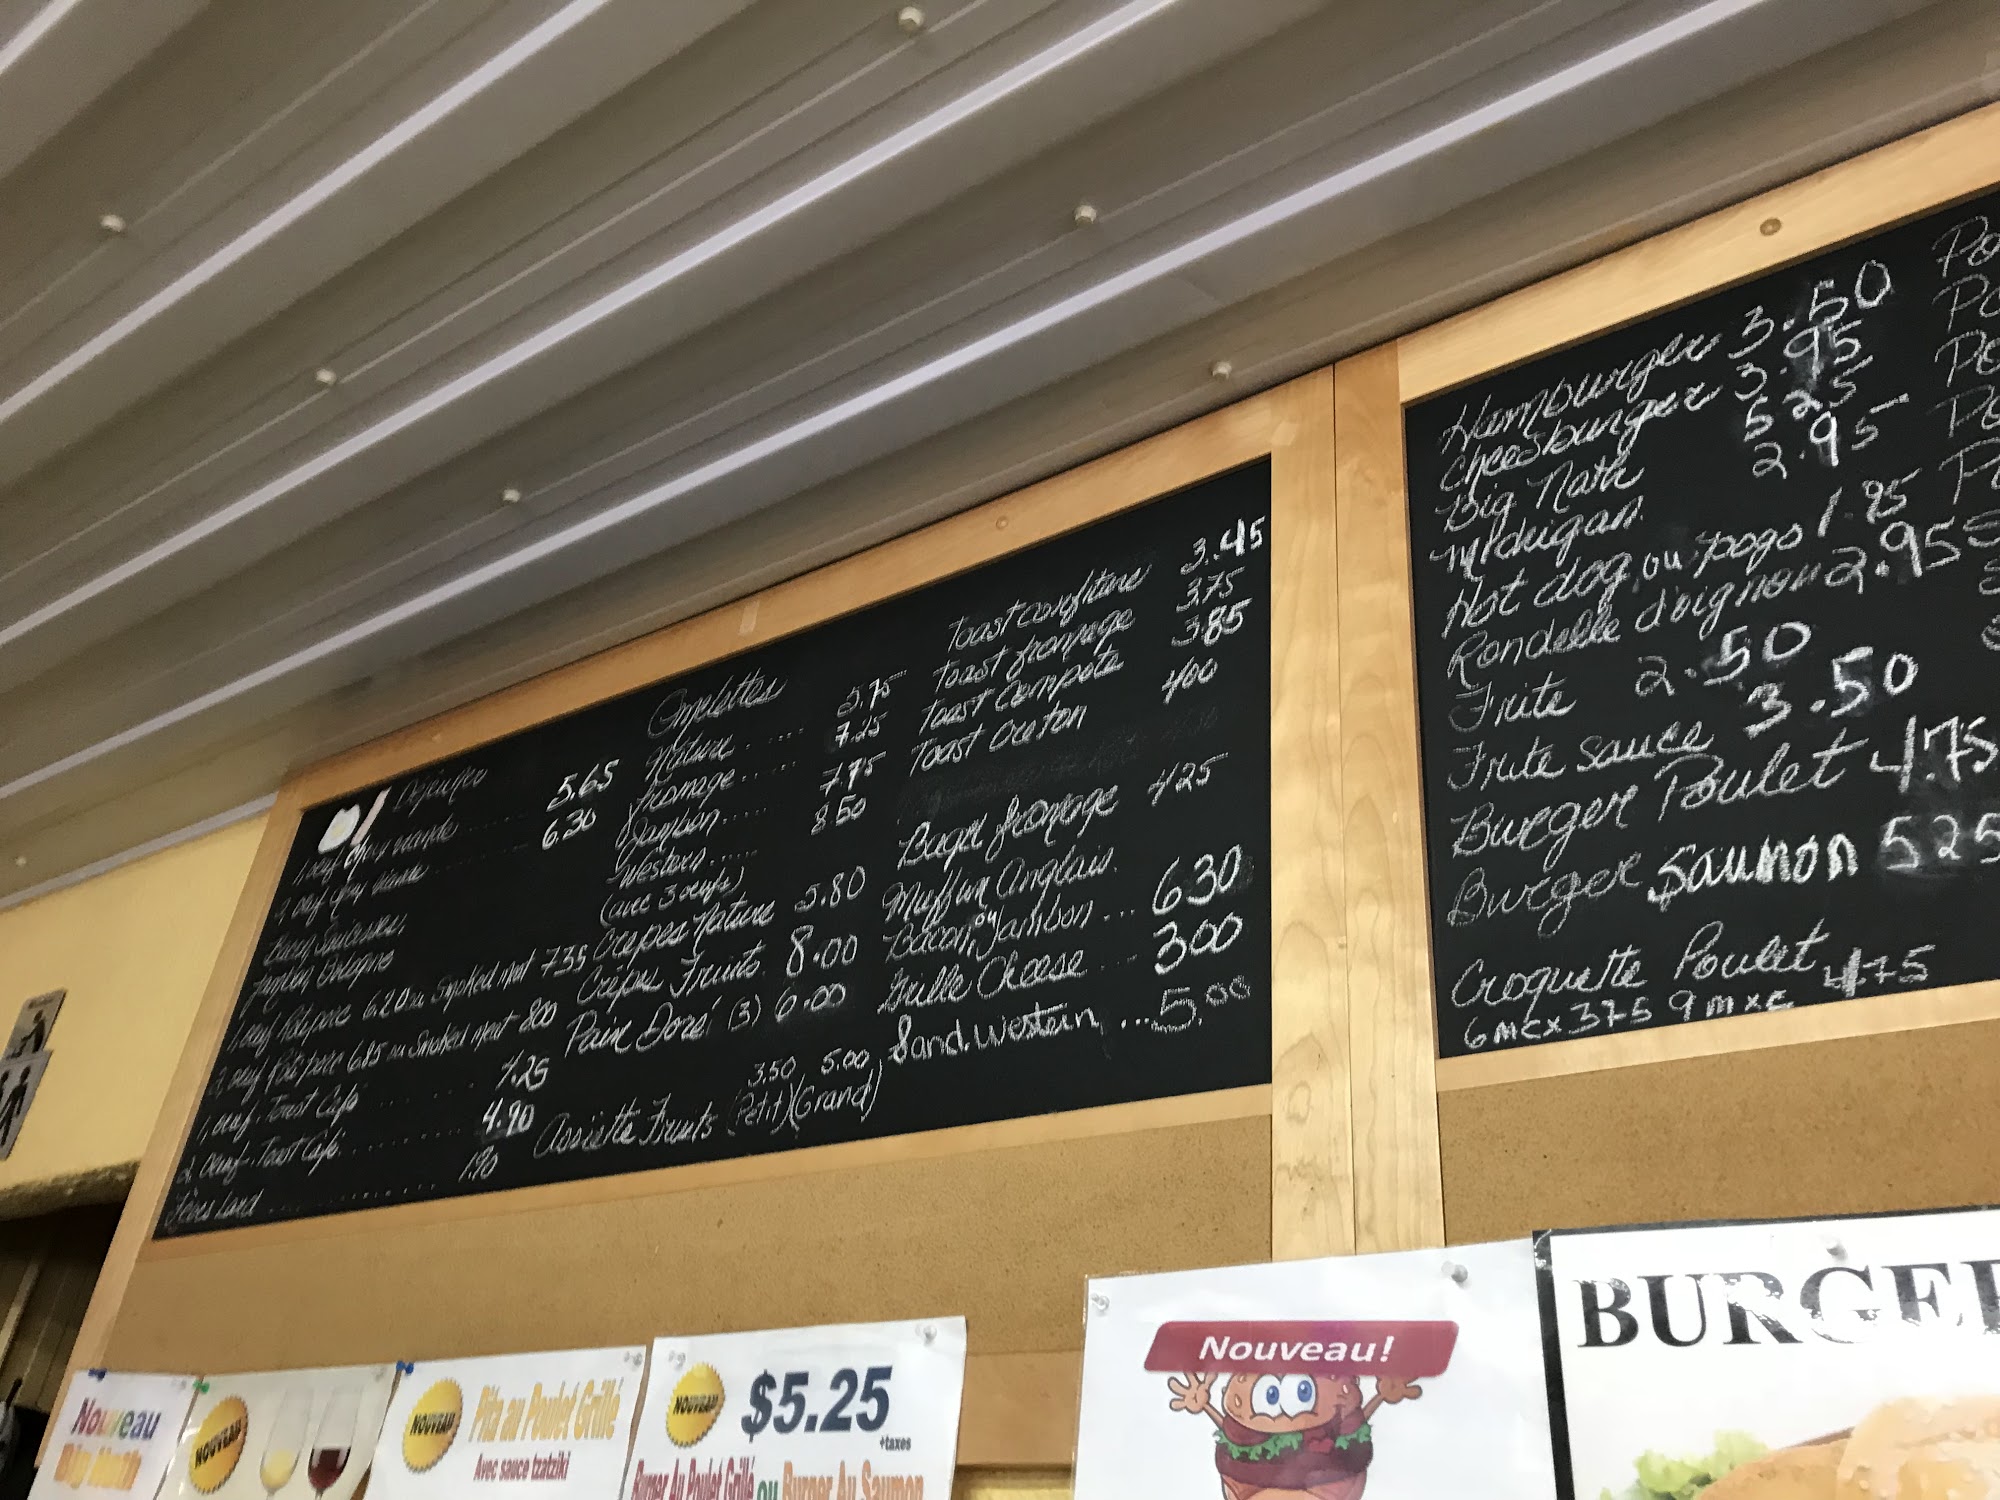 Déjeuner
1, oeuf choix viande ........ 5.65
2, oeuf choix viande ........ 6.30
Bacon, Saucisse,
Jambon, Bologne
1, oeuf 6.20 ou Smoked meat 7.35
2, oeuf 6.85 ou Smoked meat 8.00
1, oeuf. Toast Café ........ 4.25
2, oeuf. Toast Café ........ 4.90
Fèves Lard ........ 1.90
Omelettes
Nature ...... 5.75
Fromage ...... 7.25
Jambon ..... 7.75
Western ...... 8.50
(avec 3 oeufs)
Crêpes Nature 5.80
Crêpes Fruits 8.00
Pain Doré (3) 6.00
3.50 5.00
Assiette Fruits (Petit)(Grand)
Toast confiture 3.45
Toast fromage 3.75
Toast Compote 3.85
Toast Creton 4.00
Bagel fromage 4.25
Muffin Anglais.
Bacon ou Jambon ... 6.30
Grille Cheese ... 3.00
Sand. Western ... 5.00
Hamburger 3.50
Cheesburger 3.95
Big Nath 5.25
Michigan. 2.95
Hot dog ou pogo 1.95
Rondelle d'oignon 2.95
Frite 2.50
Frite sauce 3.50
Burger Poulet 4.75
Burger Saumon 5.25
Croquette Poulet
6 mcx 3.75 9 mxc 4.75
Nouveau
NOUVEAU
NOUVEAU
Pita au Poulet Grillé
Avec sauce tzatziki
NOUVEAU
$5.25
+taxes
Burger Au Poulet Grillé ou Burger Au Saumon
Nouveau!
BURGER